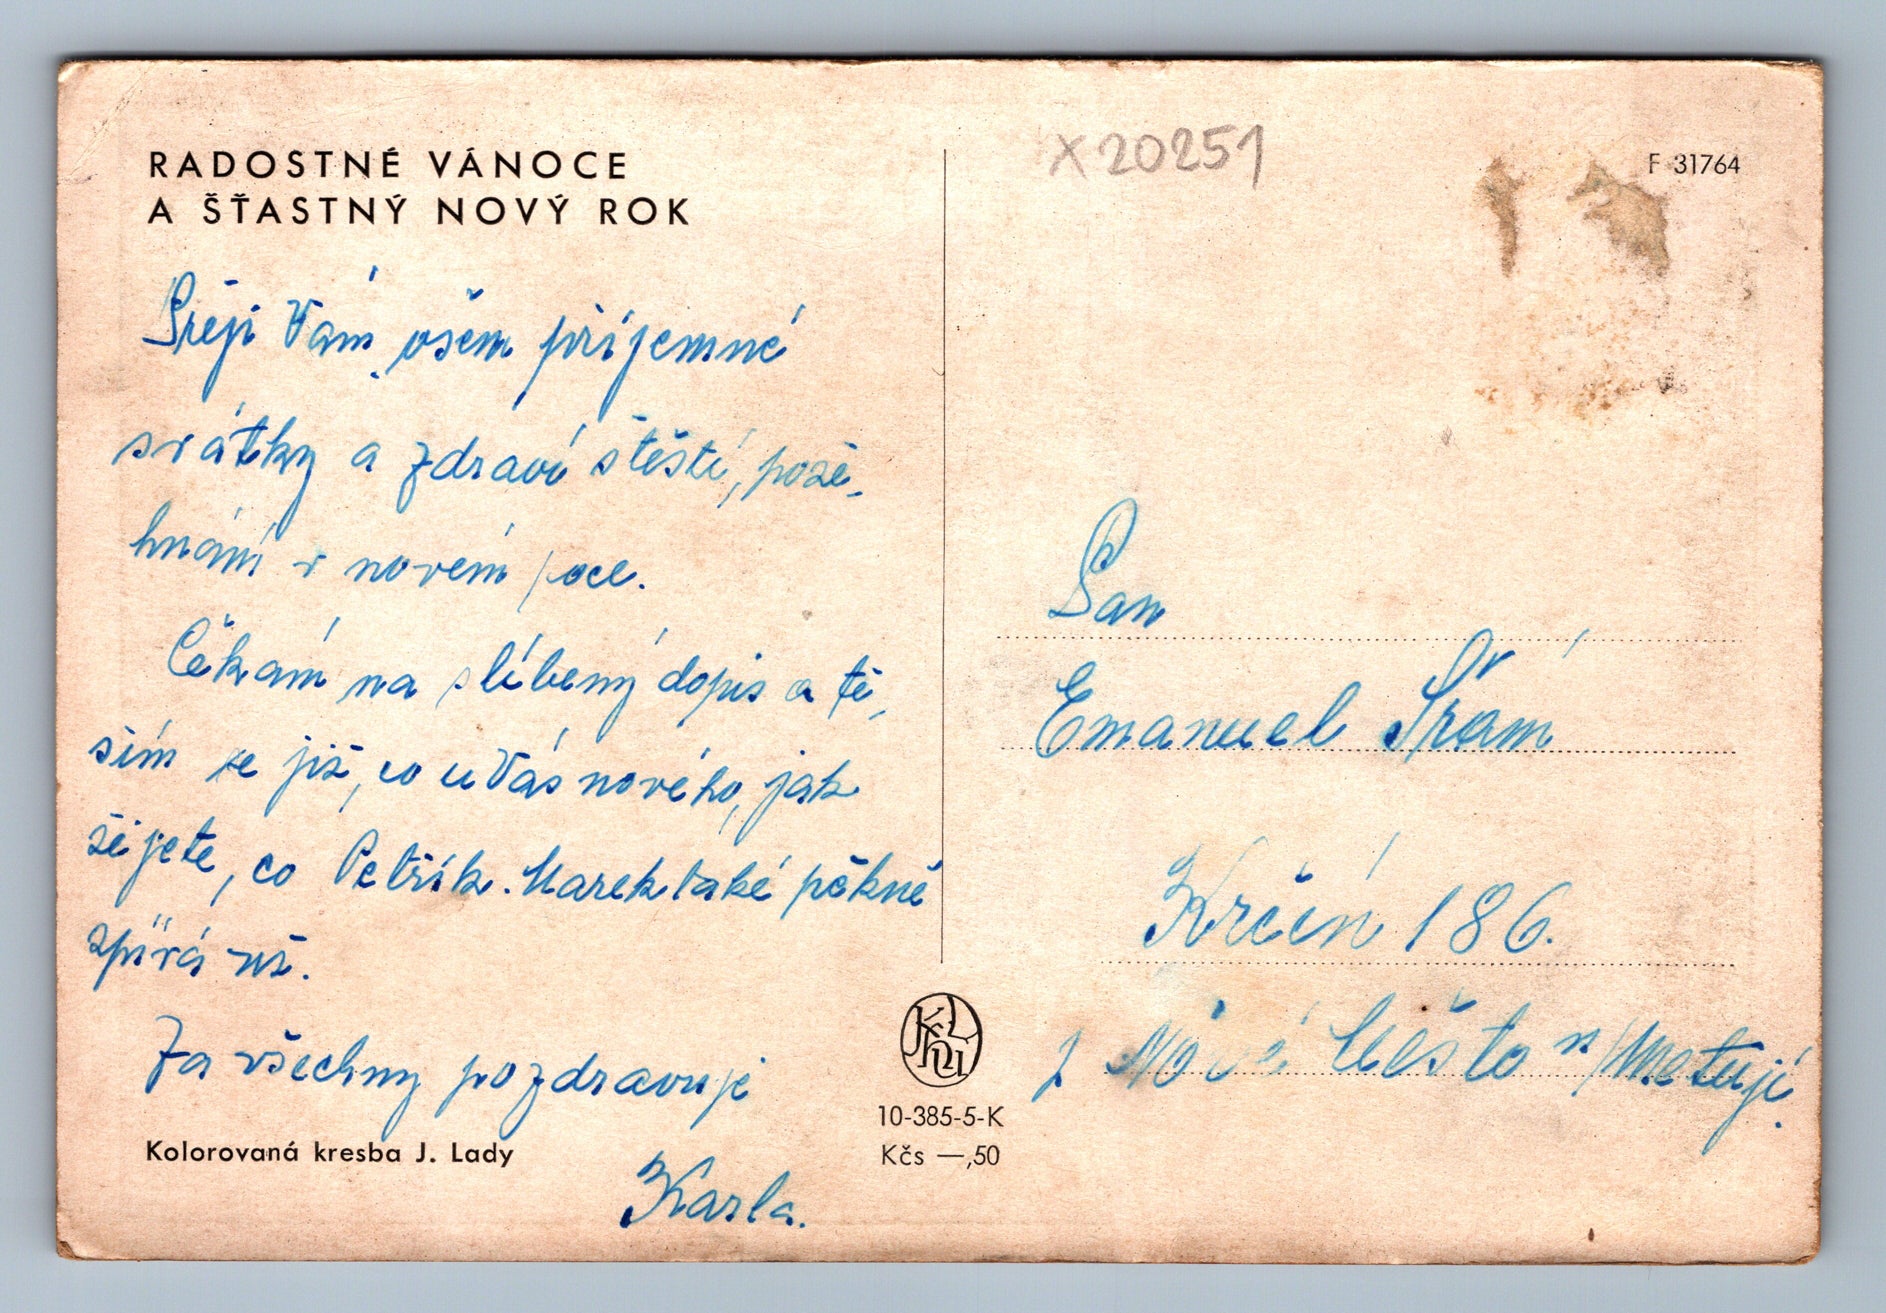 RADOSTNÉ VÁNOCE
A ŠŤASTNÝ NOVÝ ROK
Přeji Vám všem příjemné
svátky a zdraví štěstí, pože-
hnání v novém roce.
Čekám na slíbený dopis a tě-
ším se již, co u Vás nového, jak
žijete, co Petřík. Marek také pěkně
zpívá už.
Za všechny pozdravuje
Karla.
Kolorovaná kresba J. Lady
10-385-5-K
Kčs —,50
X 20251
F 31764
Pan
Emanuel Šrám
Krčín 186.
Nové Město n/Metují.